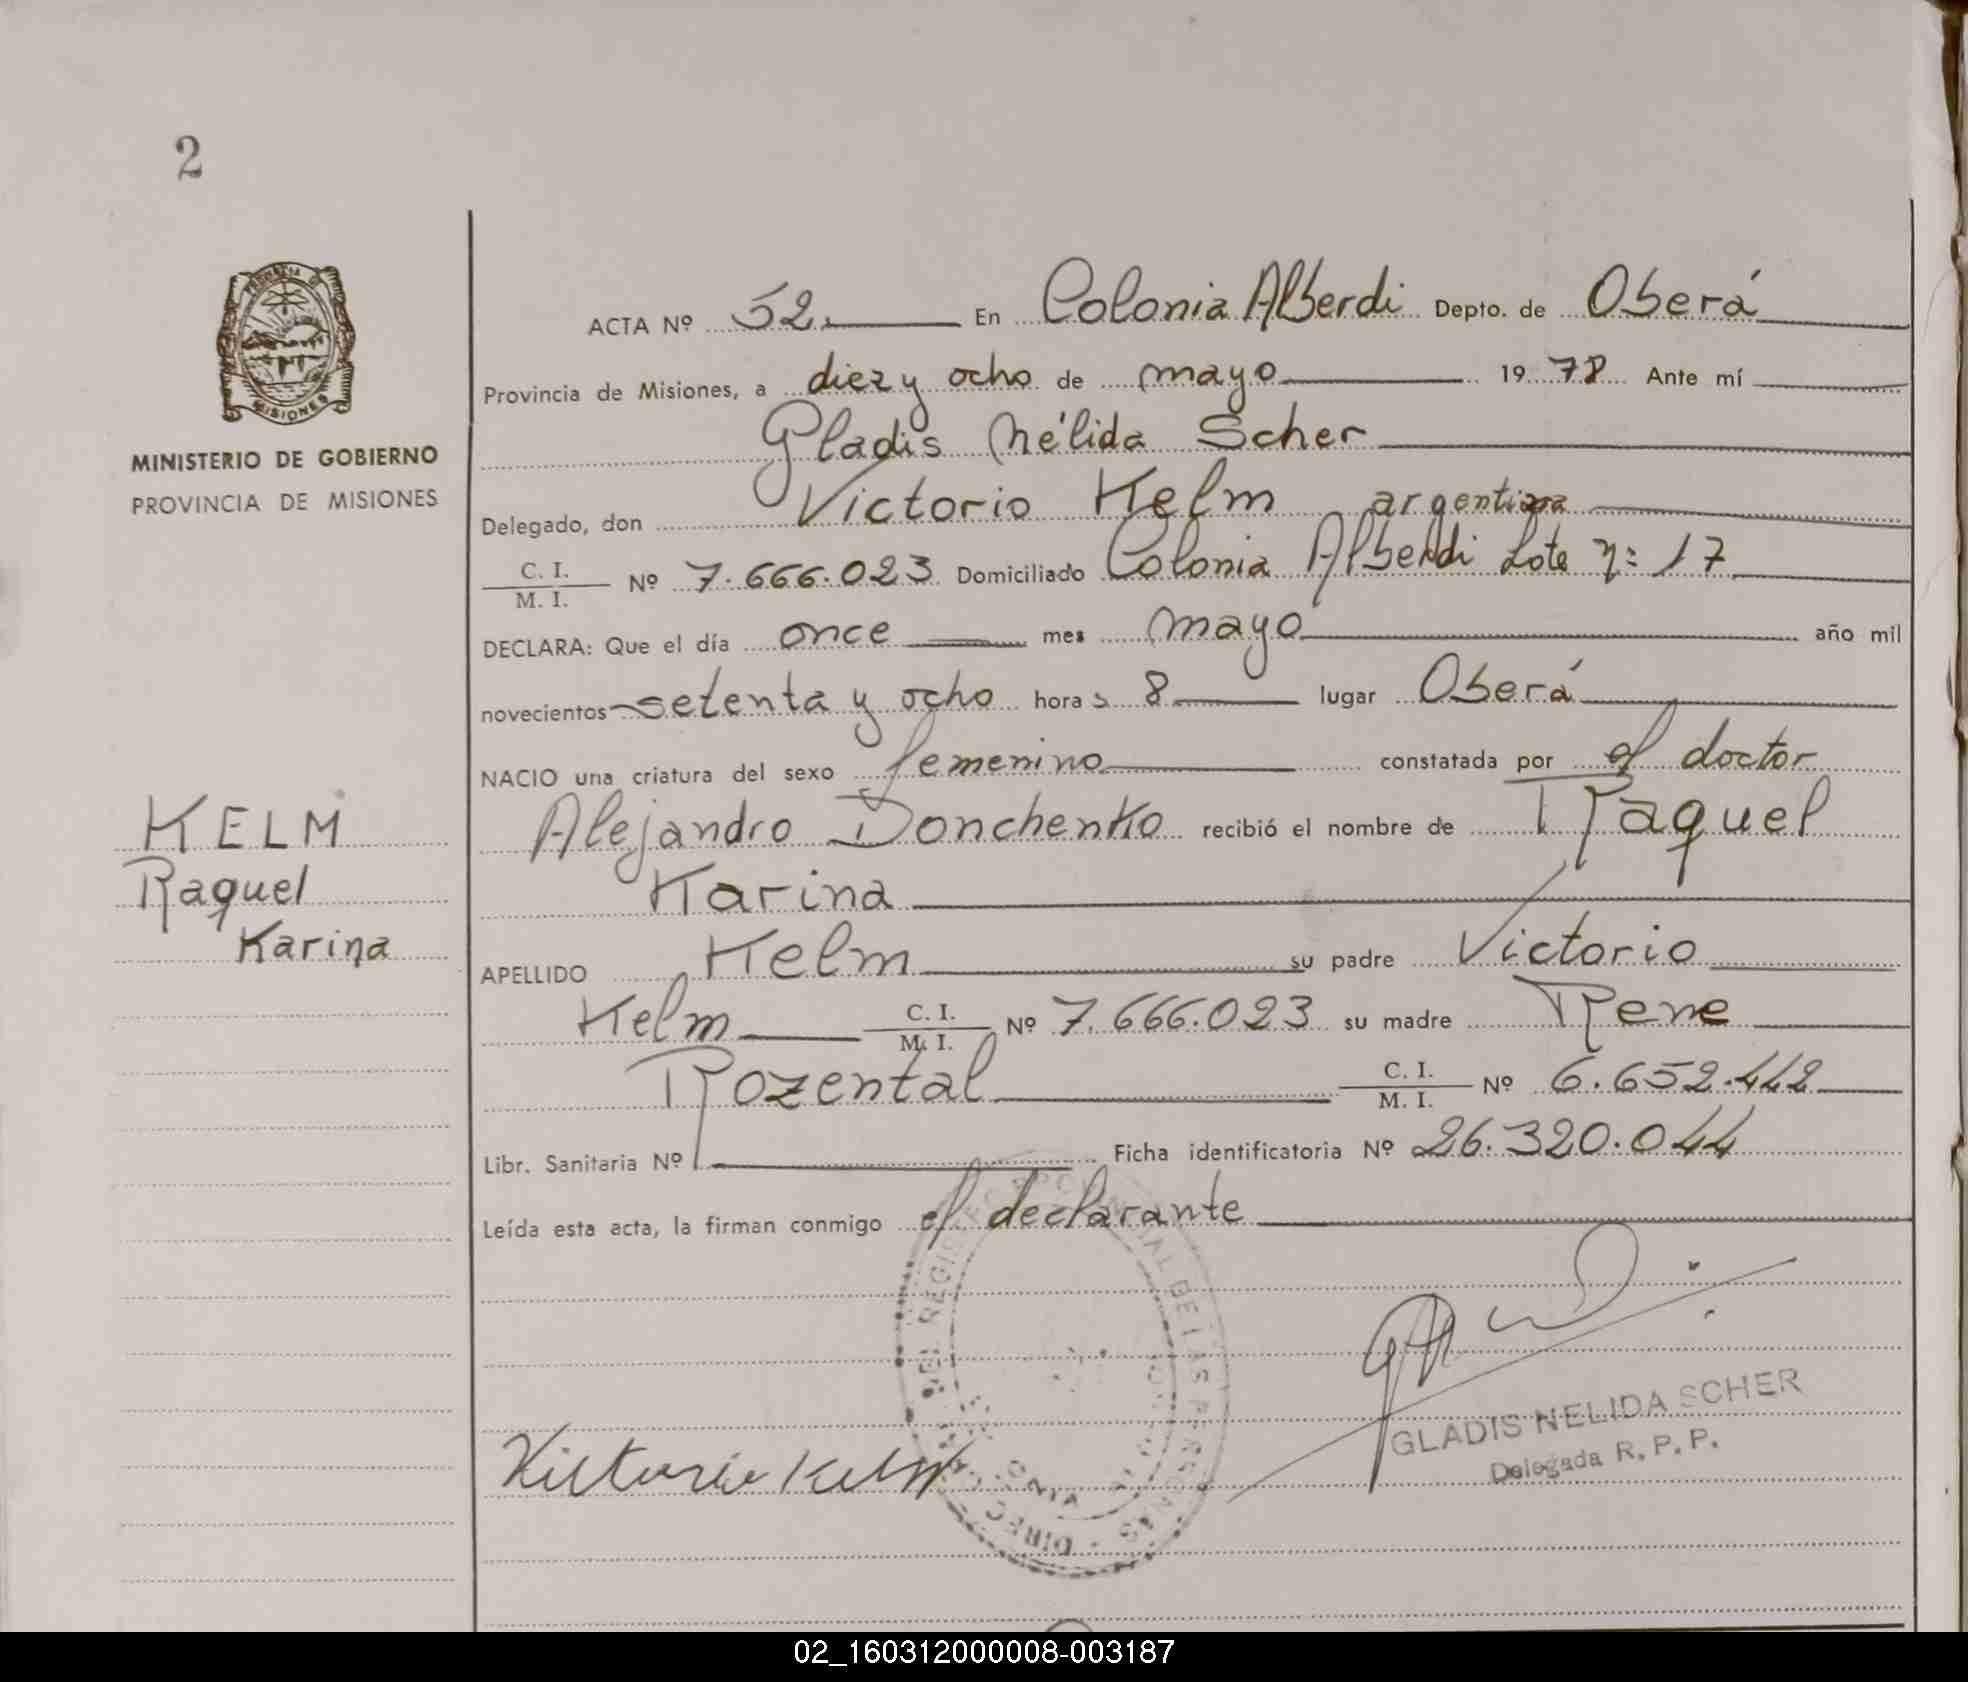 2
PROVINCIA DE
MISIONES
MINISTERIO DE GOBIERNO
PROVINCIA DE MISIONES
KELM
Raquel
Karina
ACTA Nº 52. En Colonia Alberdi Depto. de Oberá
Provincia de Misiones, a diez y ocho de mayo 1978 Ante mí
Gladis Nélida Scher
Delegado, don Victorio Kelm argentino
C. I.
M. I. Nº 7.666.023 Domiciliado Colonia Alberdi Lote n: 17
DECLARA: Que el día once mes mayo año mil
novecientos setenta y ocho horas 8 lugar Oberá
NACIO una criatura del sexo femenino constatada por el doctor
Alejandro Donchenko recibió el nombre de Raquel
Karina
APELLIDO Kelm su padre Victorio
Kelm C. I.
M. I. Nº 7.666.023 su madre Rene
Rozental C. I.
M. I. Nº 6.652.442
Libr. Sanitaria Nº Ficha identificatoria Nº 26.320.044
Leída esta acta, la firman conmigo el declarante
Victorio Kelm
GLADIS NELIDA SCHER
Delegada R. P. P.
02_160312000008-003187